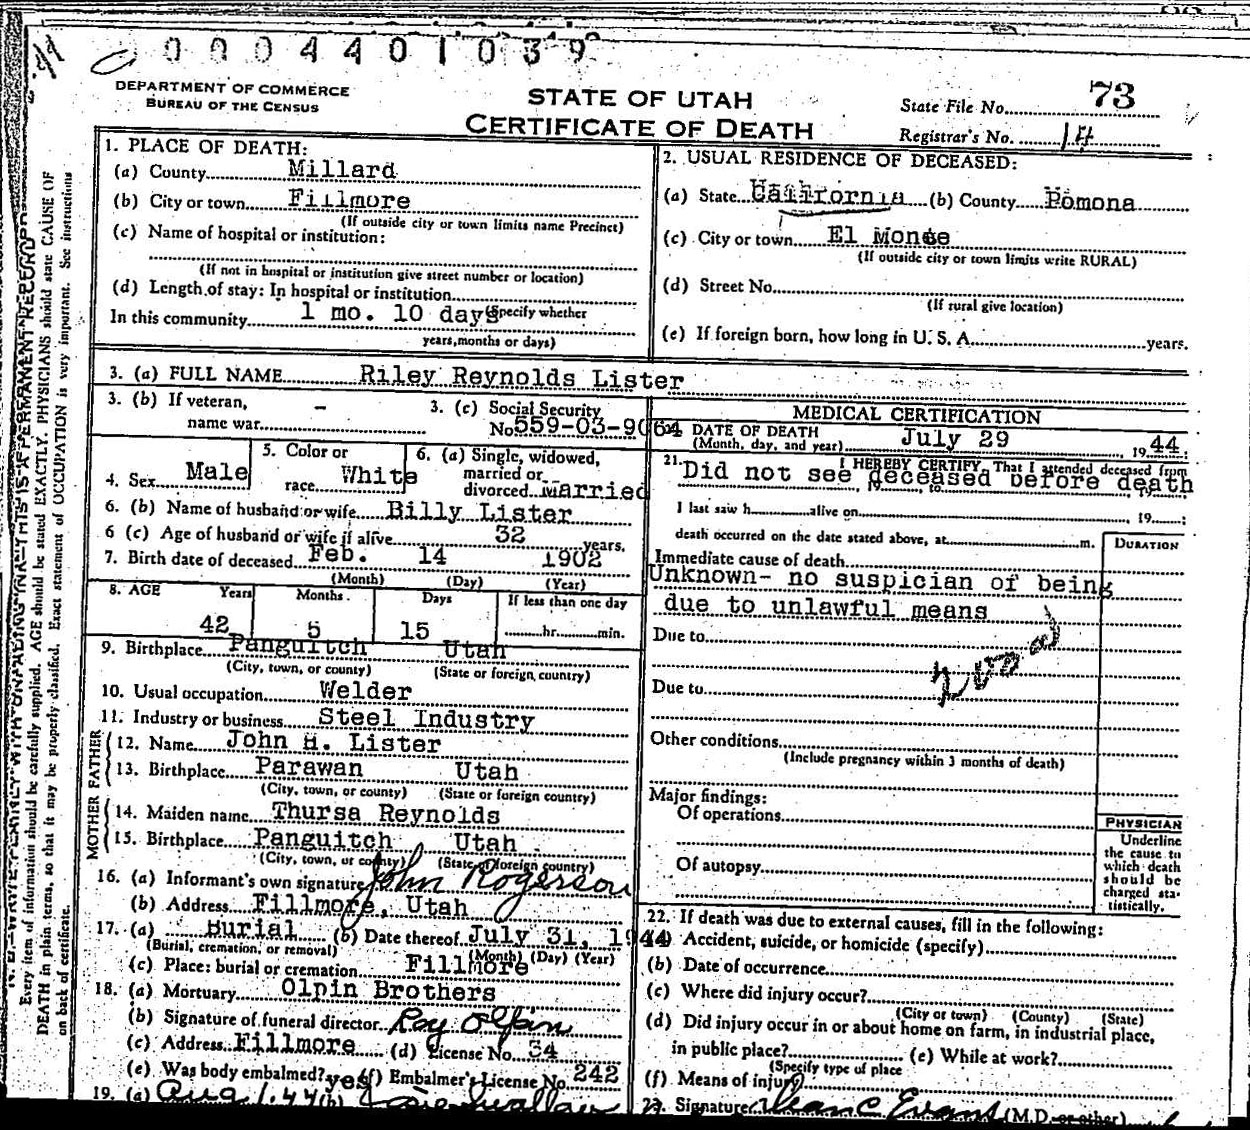 0004401039
DEPARTMENT OF COMMERCE
BUREAU OF THE CENSUS
STATE OF UTAH
CERTIFICATE OF DEATH
State File No. 73
Registrar's No. 14
1. PLACE OF DEATH:
(a) County Millard
(b) City or town Fillmore
(If outside city or town limits name Precinct)
(c) Name of hospital or institution:
(If not in hospital or institution give street number or location)
(d) Length of stay: In hospital or institution
(Specify whether
In this community 1 mo. 10 days
years, months or days)
2. USUAL RESIDENCE OF DECEASED:
(a) State California (b) County Pomona
(c) City or town El Monte
(If outside city or town limits write RURAL)
(d) Street No.
(If rural give location)
(e) If foreign born, how long in U. S. A. years.
3. (a) FULL NAME Riley Reynolds Lister
3. (b) If veteran, name war -
3. (c) Social Security No. 559-03-9064
4. Sex Male
5. Color or race White
6. (a) Single, widowed, married or divorced Married
6. (b) Name of husband or wife Billy Lister
6 (c) Age of husband or wife if alive 32 years.
7. Birth date of deceased Feb. 14 1902
(Month) (Day) (Year)
8. AGE Years Months Days If less than one day
42 5 15 hr. min.
9. Birthplace Panguitch Utah
(City, town, or county) (State or foreign country)
10. Usual occupation Welder
11. Industry or business Steel Industry
FATHER
12. Name John H. Lister
13. Birthplace Parawan Utah
(City, town, or county) (State or foreign country)
MOTHER
14. Maiden name Thursa Reynolds
15. Birthplace Panguitch Utah
(City, town, or county) (State or foreign country)
16. (a) Informant's own signature John Rogerson
(b) Address Fillmore, Utah
17. (a) Burial (b) Date thereof July 31, 1944
(Burial, cremation, or removal) (Month) (Day) (Year)
(c) Place: burial or cremation Fillmore
18. (a) Mortuary Olpin Brothers
(b) Signature of funeral director Roy Olpin
(c) Address Fillmore (d) License No. 34
(e) Was body embalmed? yes (f) Embalmer's License No. 242
19. (a) Aug 1.44 (b)
MEDICAL CERTIFICATION
DATE OF DEATH
(Month, day, and year) July 29 1944
21. I HEREBY CERTIFY, That I attended deceased from
Did not see deceased before death
19 to 19
I last saw h alive on , 19 ;
death occurred on the date stated above, at m.
DURATION
Immediate cause of death
Unknown- no suspician of being
due to unlawful means
Due to
Due to
Other conditions
(Include pregnancy within 3 months of death)
Major findings:
Of operations
Of autopsy
PHYSICIAN
Underline
the cause to
which death
should be
charged sta-
tistically.
22. If death was due to external causes, fill in the following:
(a) Accident, suicide, or homicide (specify)
(b) Date of occurrence
(c) Where did injury occur?
(City or town) (County) (State)
(d) Did injury occur in or about home on farm, in industrial place,
in public place? (e) While at work?
(Specify type of place
(f) Means of injury
Signature Dean C Evans (M.D. or other)
Every item of information should be carefully supplied. AGE should be stated EXACTLY. PHYSICIANS should state CAUSE OF
DEATH in plain terms, so that it may be properly classified. Exact statement of OCCUPATION is very important. See instructions
on back of certificate.